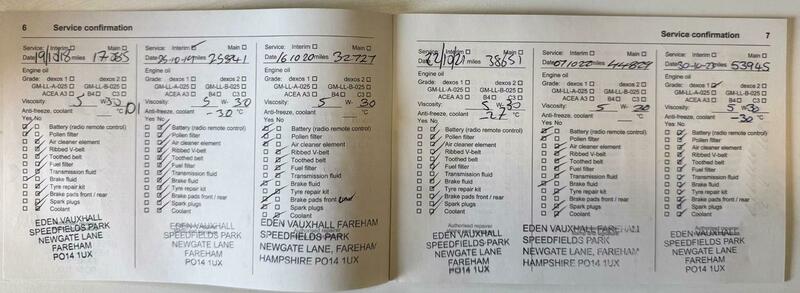 6 Service confirmation
Service: Interim Main
Date 19/10/18 miles 17385
Engine oil
Grade: dexos 1 dexos 2
GM-LL-A-025 GM-LL-B-025
ACEA A3 B4 C3
Viscosity: 5 W- 30
Anti-freeze, coolant °C
Yes No
Battery (radio remote control)
Pollen filter
Air cleaner element
Ribbed V-belt
Toothed belt
Fuel filter
Transmission fluid
Brake fluid
Tyre repair kit
Brake pads front / rear
Spark plugs
Coolant
EDEN VAUXHALL
SPEEDFIELDS PARK
NEWGATE LANE
FAREHAM
PO14 1UX
Service: Interim Main
Date 25-10-19 miles 25841
Engine oil
Grade: dexos 1 dexos 2
GM-LL-A-025 GM-LL-B-025
ACEA A3 B4 C3
Viscosity: 5 W- 30
Anti-freeze, coolant -30 °C
Yes No
Battery (radio remote control)
Pollen filter
Air cleaner element
Ribbed V-belt
Toothed belt
Fuel filter
Transmission fluid
Brake fluid
Tyre repair kit
Brake pads front / rear
Spark plugs
Coolant
EDEN VAUXHALL
SPEEDFIELDS PARK
NEWGATE LANE
FAREHAM
PO14 1UX
Service: Interim Main
Date 16 10 20 miles 32727
Engine oil
Grade: dexos 1 dexos 2
GM-LL-A-025 GM-LL-B-025
ACEA A3 B4 C3
Viscosity: 5 W- 30
Anti-freeze, coolant °C
Yes No
Battery (radio remote control)
Pollen filter
Air cleaner element
Ribbed V-belt
Toothed belt
Fuel filter
Transmission fluid
Brake fluid
Tyre repair kit
Brake pads front
Spark plugs
Coolant
EDEN VAUXHALL FAREHAM
SPEEDFIELDS PARK
NEWGATE LANE, FAREHAM
HAMPSHIRE PO14 1UX
Service confirmation 7
Service: Interim Main
Date 22/10/21 miles 38651
Engine oil
Grade: dexos 1 dexos 2
GM-LL-A-025 GM-LL-B-025
ACEA A3 B4 C3
Viscosity: 5 W- 30
Anti-freeze, coolant -27 °C
Yes No
Battery (radio remote control)
Pollen filter
Air cleaner element
Ribbed V-belt
Toothed belt
Fuel filter
Transmission fluid
Brake fluid
Tyre repair kit
Brake pads front / rear
Spark plugs
Coolant
Authorised repairer
EDEN VAUXHALL
SPEEDFIELDS PARK
NEWGATE LANE
FAREHAM
PO14 1UX
Service: Interim Main
Date 07 10 22 miles
Engine oil
Grade: dexos 1 dexos 2
GM-LL-A-025 GM-LL-B-025
ACEA A3 B4 C3
Viscosity: 5 W- 30
Anti-freeze, coolant °C
Yes No
Battery (radio remote control)
Pollen filter
Air cleaner element
Ribbed V-belt
Toothed belt
Fuel filter
Transmission fluid
Brake fluid
Tyre repair kit
Brake pads front / rear
Spark plugs
Coolant
EDEN VAUXHALL FAREHAM
SPEEDFIELDS PARK
NEWGATE LANE, FAREHAM
HAMPSHIRE PO14 1UX
Service: Interim Main
Date 30-10-23 miles 53945
Engine oil
Grade: dexos 1 dexos 2
GM-LL-A-025 GM-LL-B-025
ACEA A3 B4 C3
Viscosity: 5 W- 30
Anti-freeze, coolant -30 °C
Yes No
Battery (radio remote control)
Pollen filter
Air cleaner element
Ribbed V-belt
Toothed belt
Fuel filter
Transmission fluid
Brake fluid
Tyre repair kit
Brake pads front / rear
Spark plugs
Coolant
EDEN VAUXHALL
SPEEDFIELDS PARK
NEWGATE LANE
FAREHAM
PO14 1UX